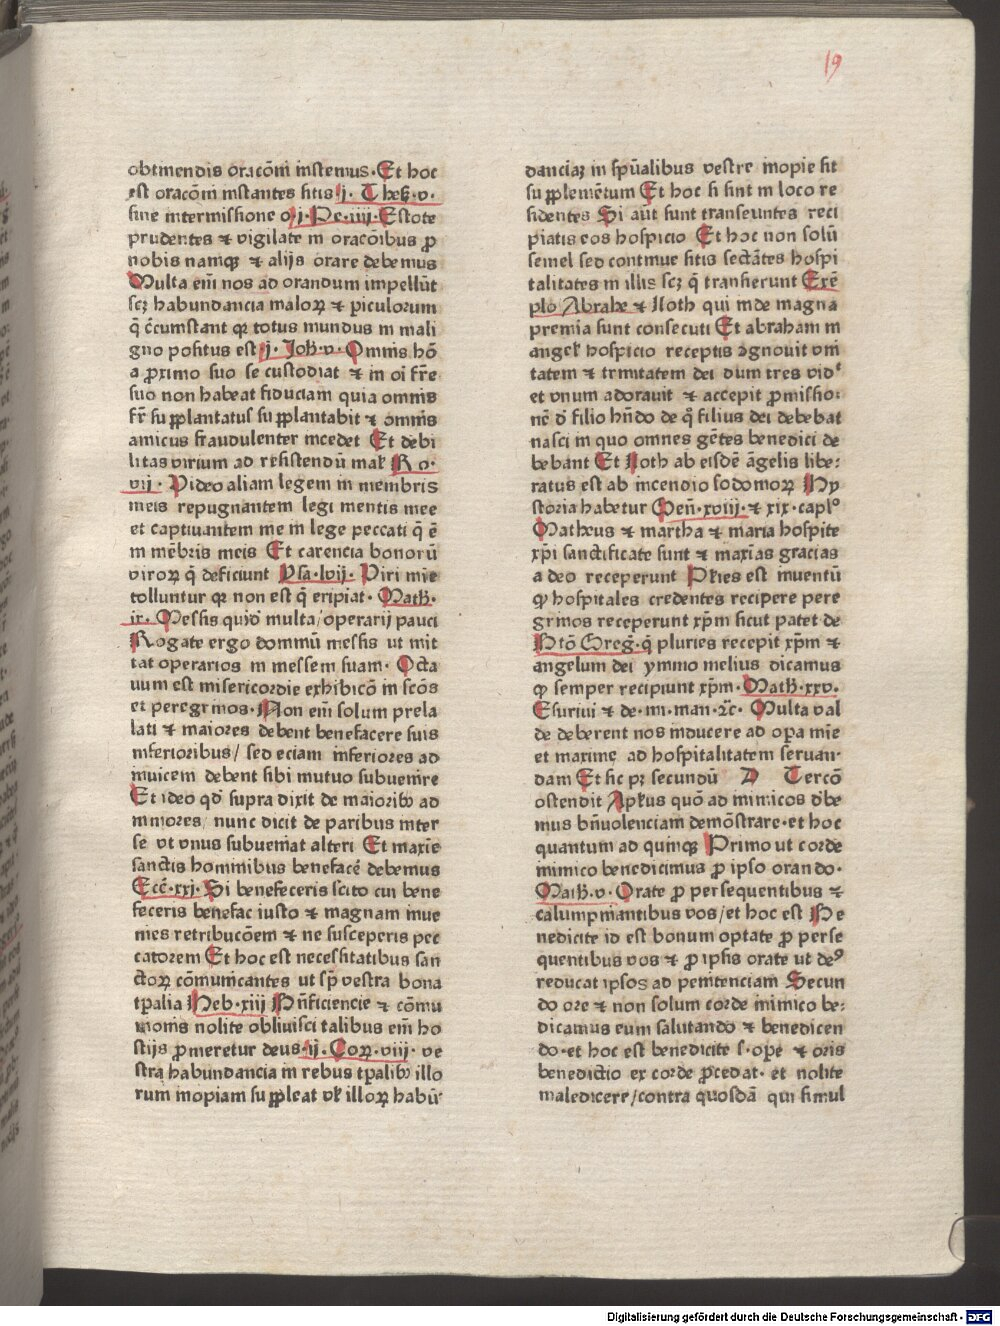 19
obtinendis oracōni instemus. Et hoc
est oracōni instantes sitis j. Theſ. v.
sine intermissione o. j. Pe. iiij. Estote
prudentes ⁊ vigilate in oracōibus ꝓ
nobis namqꝫ ⁊ alijs orare debemus
Multa em̄ nos ad orandum impellūt
scꝫ habundancia maloꝝ ⁊ ꝑiculorum
q̄ c̄cumstant qꝛ totus mundus in mali
gno positus est j. Joh. v. Omnis hō
a ꝓximo suo se custodiat ⁊ in oi fr̄e
suo non habeat fiduciam quia omnis
fr̄ supplantatus supplantabit ⁊ omnis
amicus fraudulenter incedet Et debi
litas virium ad resistendū mal' Ro.
vij. Video aliam legem in membris
meis repugnantem legi mentis mee
et captiuantem me in lege peccati q̄ ē
in mēbris meis Et carencia bonorū
viroꝝ q̄ deficiunt Ysa. lvij. Viri mīe
tolluntur qꝛ non est q̄ eripiat. Math.
ix. Messis quid̄ multa / operarij pauci
Rogate ergo dominū messis ut mit
tat operarios in messem suam. Octa
uum est misericordie exhibicō in scōs
et peregrinos. Non em̄ solum prela
lati ⁊ maiores debent benefacere suis
inferioribus / sed eciam inferiores ad
inuicem debent sibi mutuo subuenire
Et ideo qd̄ supra dixit de maioribꝰ ad
minores / nunc dicit de paribus inter
se vt vnus subueniat alteri Et maxīe
sanctis hominibus benefacē debemus
Eccē. xxj. Si benefeceris scito cui bene
feceris benefac iusto ⁊ magnam inue
nies retribucōem ⁊ ne susceperis pec
catorem Et hoc est necessitatibus san
ctoꝝ cōmunicantes ut sp̄ vestra bona
tp̄alia Heb. xiij Bn̄ficiencie ⁊ cōmu
nionis nolite obliuisci talibus em̄ ho
stijs ꝓmeretur deus. ij. Coꝝ. viij. ve
stra habundancia in rebus tp̄alibꝰ illo
rum inopiam suppleat vł illoꝝ habū
danciaꝫ in sp̄ualibus vestre inopie sit
supplemētum Et hoc si sint in loco re
sidentes Si aūt sunt transeuntes reci
piatis eos hospicio Et hoc non solū
semel sed continue sitis sectātes hospi
talitates in illis scꝫ q̄ transierunt Exē
plo Abrahe ⁊ Loth qui inde magna
premia sunt consecuti Et abraham in
angel' hospicio receptis ꝯgnouit vni
tatem ⁊ trinitatem dei dum tres vidꝭ
et vnum adorauit ⁊ accepit ꝓmissio⸗
nē d̄ filio hn̄do de q̄ filius dei debebat
nasci in quo omnes gētes benedici de
bebant Et Loth ab eisdē āgelis libe⸗
ratus est ab incendio sodomoꝝ Hy
storia habetur Gen̄. xviij. ⁊ xix. caplº
Matheus ⁊ martha ⁊ maria hospite
xp̄i sanctificate sunt ⁊ maxīas gracias
a deo receperunt Pl'ies est inuentū
ꝙ hospitales credentes recipere pere
grinos receperunt xp̄m sicut patet de
Btō Greg. q̄ pluries recepit xp̄m ⁊
angelum dei ymmo melius dicamus
ꝙ semper recipiunt xp̄m. Math. xxv.
Esuriui ⁊ de. mi. man. ⁊c. Multa val
de deberent nos inducere ad oꝑa mīe
et maxime ad hospitalitatem seruan⸗
dam Et sic pꝫ secundū D Tercō
ostendit Apl'us quō ad inimicos d'be
mus bn̄uolenciam demōstrare. et hoc
quantum ad quinqꝫ Primo ut corde
inimico benedicimus ꝓ ipso orando.
Math. v. Orate ꝓ persequentibus ⁊
calumpniantibus vos / et hoc est Be
nedicite id est bonum optate ꝓ perse
quentibus vos ⁊ ꝓ ipsis orate ut deꝰ
reducat ipsos ad penitenciam Secun
do ore ⁊ non solum corde inimico be⸗
dicamus eum salutando ⁊ benedicen
do. et hoc est benedicite s. oꝑe ⁊ oris
benedictio ex corde ꝓcedat. et nolite
maledicere / contra quosdā qui simul
Digitalisierung gefördert durch die Deutsche Forschungsgemeinschaft - DFG